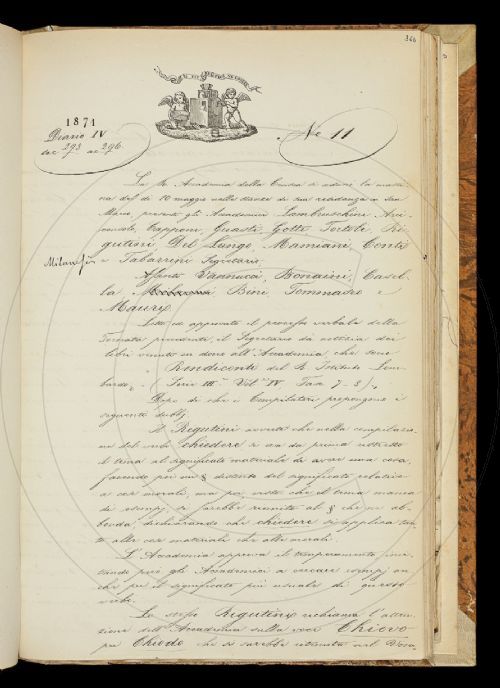 366
IL PIÙ BEL FIOR NE COGLIE
1871
Diario IV
dac 293 ac 296.
N.o 11
La R. Accademia della Crusca si adunò la matti-
na del dì 10 maggio nelle stanze di sua residenza in San
Marco, presenti gli Accademici Lambruschini, Arci-
consolo, Capponi, Guasti, Gotti, Tortoli, Ri-
gutini, Del Lungo, Mamiani, Conti
Milanesi
e Tabarrini Segretario.
Assenti Vannucci, Bonaini, Casel-
la Milanesi Bini, Tommaseo e
Maury.
Letto ed approvato il processo verbale della
Tornata precedente, il Segretario dà notizia dei
libri venuti in dono all'Accademia, che sono
Rendiconti del R. Istituto Lom-
bardo, Serie III Vol. IV Fas. 7-8).
Dopo di che i Compilatori propongono i
seguenti dubbj.
Il Rigutini avverte che nella compilazio-
ne del verbo chiedere si era da prima ristretto
il tema al significato materiale di avere una cosa,
facendo poi un § distinto del significato relativo
a cose morali, ma poi visto che il tema manca
di esempj, si sarebbe riunito al § che ne ab-
bonda, dichiarando che chiedere si applica tan-
to alle cose materiali che alle morali.
L'Accademia approva il temperamento invi-
tando però gli Accademici a cercare esempj an-
che per il significato più usuale di questo
verbo.
Lo stesso Rigutini richiama l'atten-
zione dell'Accademia sulla voce Chiovo
per Chiodo che si sarebbe ritenuta nel Voca-